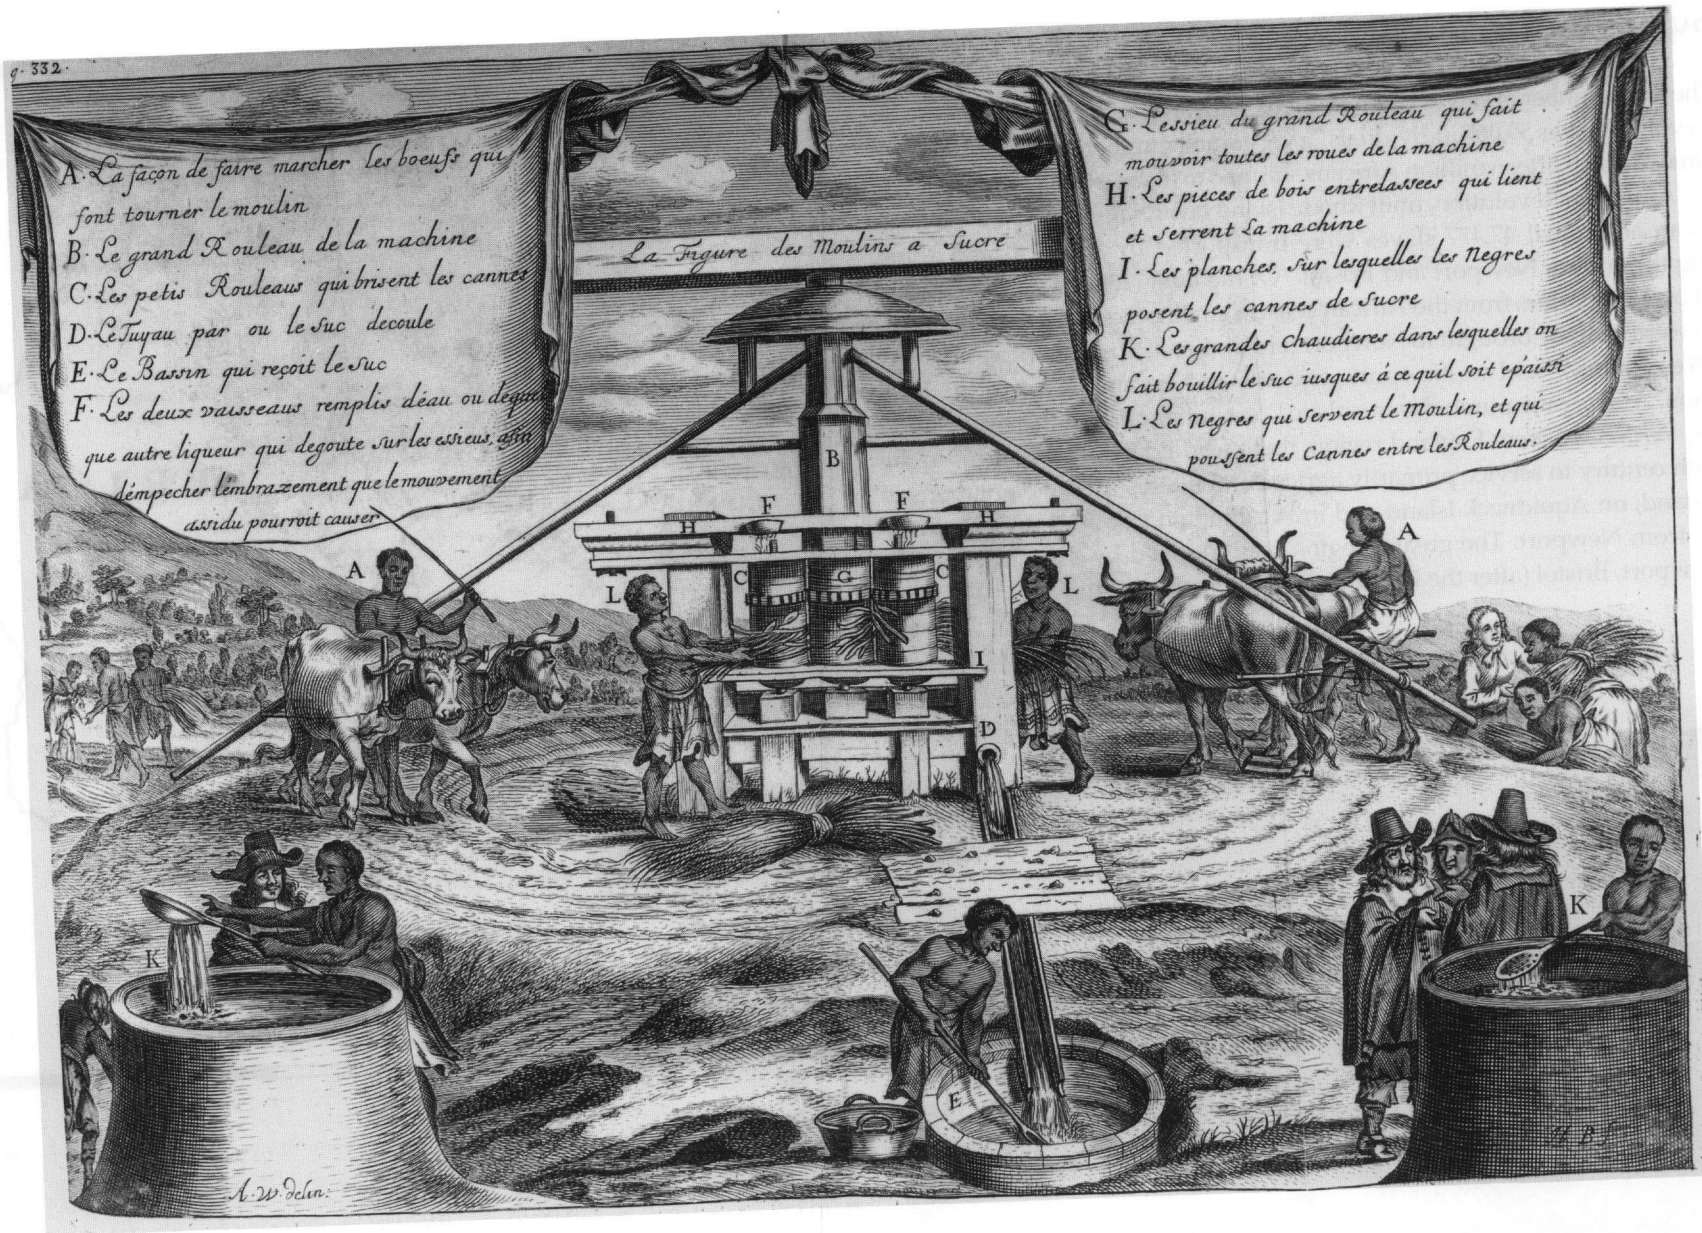 q. 332.
A. La façon de faire marcher les boeufs qui
font tourner le moulin
B. Le grand Rouleau de la machine
C. Les petis Rouleaus qui brisent les cannes
D. Le Tuyau par ou le suc decoule
E. Le Bassin qui reçoit le suc
F. Les deux vaisseaus remplis déau ou
que autre liqueur qui degoute sur les essieus, afin
démpecher lémbrazement que le mouvement
assidu pourroit causer
La Figure des Moulins a Sucre
G. Lessieu du grand Rouleau qui fait
mouvoir toutes les roues de la machine
H. Les pieces de bois entrelassees qui lient
et serrent la machine
I. Les planches, sur lesquelles les Negres
posent les cannes de sucre
K. Les grandes chaudieres dans lesquelles on
fait bouillir le suc iusques á ce quil soit epáissi
L. Les Negres qui servent le Moulin, et qui
poussent les Cannes entre les Rouleaus.
B
F F
H H
A
A
C G C
L
L
I
D
K
K
E
A. W. delin: